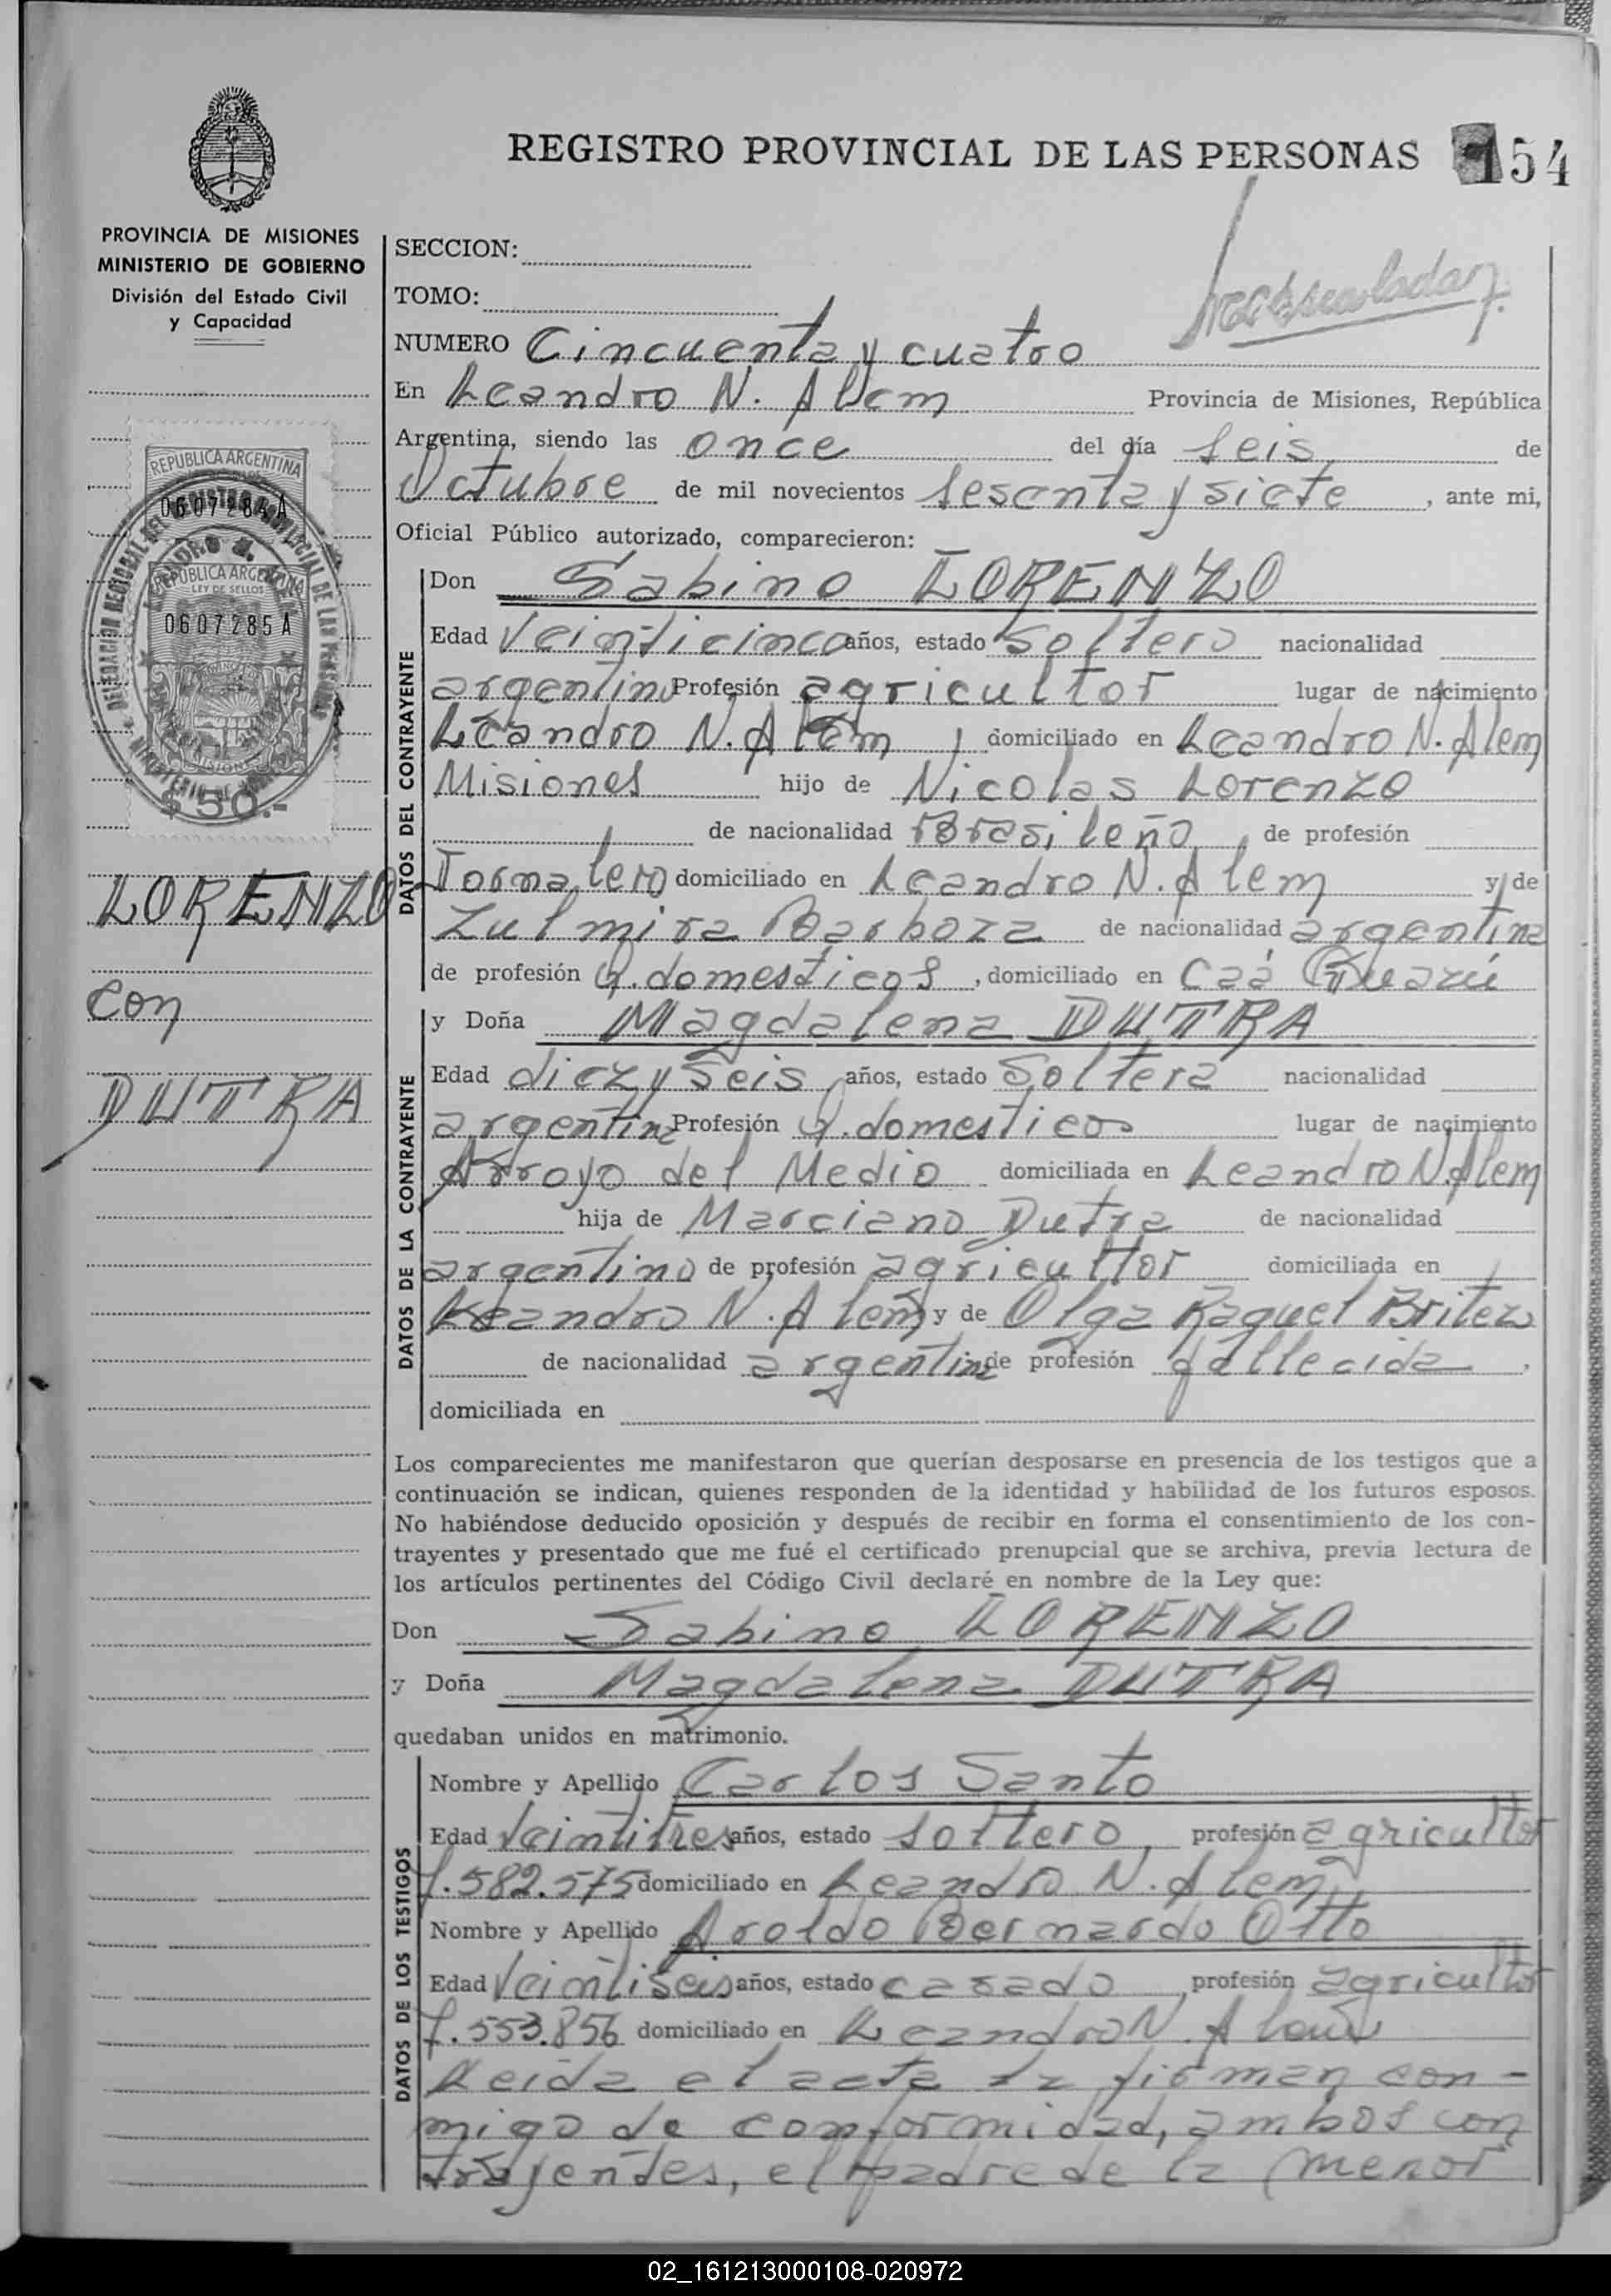 REGISTRO PROVINCIAL DE LAS PERSONAS 154
PROVINCIA DE MISIONES
MINISTERIO DE GOBIERNO
División del Estado Civil
y Capacidad
REPUBLICA ARGENTINA
0607284A
REPUBLICA ARGENTINA
LEY DE SELLOS
0607285A
MISIONES
$50.-
LORENZO
con
DUTRA
SECCION:
TOMO:
NUMERO Cincuenta y cuatro
En Leandro N. Alem Provincia de Misiones, República
Argentina, siendo las once del día seis de
Octubre de mil novecientos sesenta y siete, ante mi,
Oficial Público autorizado, comparecieron:
DATOS DEL CONTRAYENTE
Don Sabino LORENZO
Edad Veinticinco años, estado Soltero nacionalidad
argentino Profesión agricultor lugar de nacimiento
Leandro N. Alem, domiciliado en Leandro N. Alem
Misiones hijo de Nicolas Lorenzo
de nacionalidad Brasileño, de profesión
Jornalero domiciliado en Leandro N. Alem y de
Zulmira Barboza de nacionalidad argentina
de profesión Q. domesticos, domiciliado en Caá Guazú
DATOS DE LA CONTRAYENTE
y Doña Magdalena DUTRA
Edad diez y Seis años, estado Soltera nacionalidad
argentina Profesión Q. domestico lugar de nacimiento
Arroyo del Medio domiciliada en Leandro N. Alem
hija de Marciano Dutra de nacionalidad
argentino de profesión agricultor domiciliada en
Leandro N. Alem y de Olga Raquel Britez
de nacionalidad argentina de profesión fallecida,
domiciliada en
Los comparecientes me manifestaron que querían desposarse en presencia de los testigos que a
continuación se indican, quienes responden de la identidad y habilidad de los futuros esposos.
No habiéndose deducido oposición y después de recibir en forma el consentimiento de los con-
trayentes y presentado que me fué el certificado prenupcial que se archiva, previa lectura de
los artículos pertinentes del Código Civil declaré en nombre de la Ley que:
Don Sabino LORENZO
y Doña Magdalena DUTRA
quedaban unidos en matrimonio.
DATOS DE LOS TESTIGOS
Nombre y Apellido Carlos Santo
Edad Veintitres años, estado soltero, profesión agricultor
7.582.575 domiciliado en Leandro N. Alem
Nombre y Apellido Aroldo Bernardo Otto
Edad Veintiseis años, estado casado, profesión agricultor
7.553.856 domiciliado en Leandro N. Alem
Leida el acta la firman con-
migo de conformidad, ambos con
trayentes, el padre de la menor
02_161213000108-020972